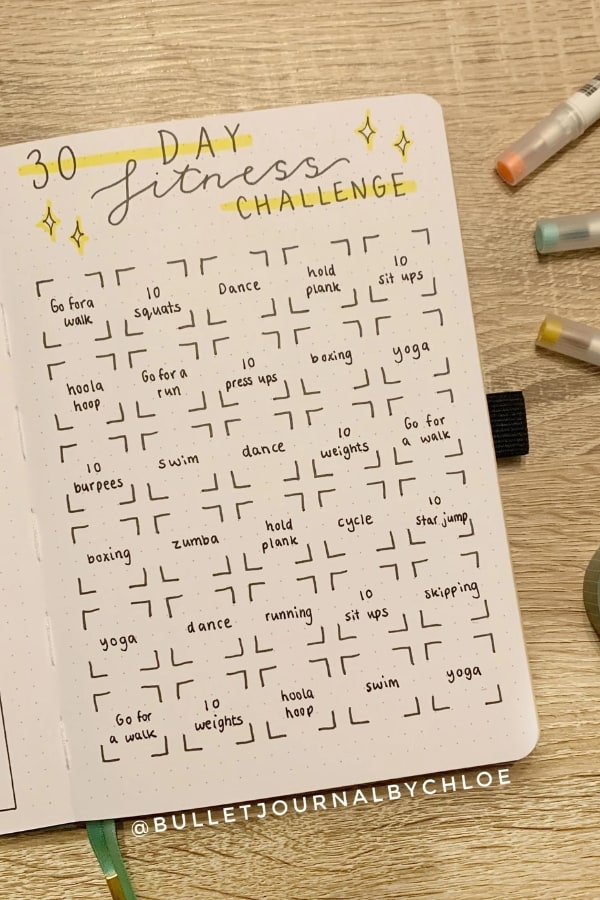 30 DAY
fitness
CHALLENGE
Go for a
walk
10
squats
Dance
hold
plank
10
sit ups
hoola
hoop
Go for a
run
10
press ups
boxing
yoga
10
burpees
swim
dance
10
weights
Go for
a walk
boxing
zumba
hold
plank
cycle
10
star jump
yoga
dance
running
10
sit ups
skipping
Go for
a walk
10
weights
hoola
hoop
swim
yoga
@BULLETJOURNALBYCHLOE